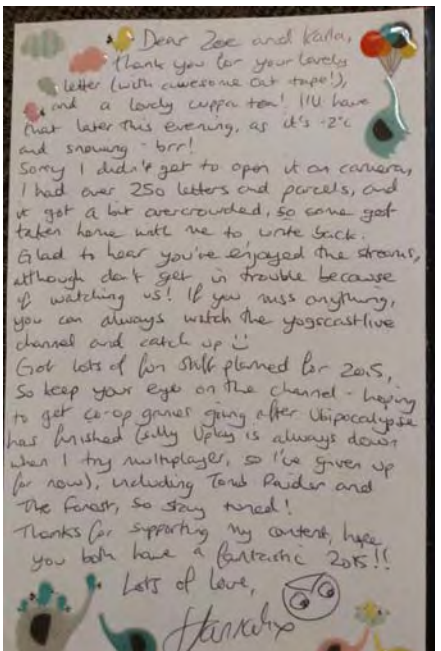 Dear Zoe and Karla,
Thank you for your lovely
letter (with awesome cat tape!),
and a lovely cuppa tea! I'll have
that later this evening, as it's -2°c
and snowing - brr!
Sorry I didn't get to open it on camera,
I had over 250 letters and parcels, and
it got a bit overcrowded, so some got
taken home with me to write back.
Glad to hear you've enjoyed the streams,
although don't get in trouble because
of watching us! If you miss anything,
you can always watch the yogscastlive
channel and catch up
Got lots of fun stuff planned for 2015,
So keep your eye on the channel - hoping
to get co-op games going after Ubipocalypse
has finished (silly Uplay is always down
when I try multiplayer, so I've given up
for now), including Tomb Raider and
The Forest, so stay tuned!
Thanks for supporting my content, hope
you both have a fantastic 2015!!
Lots of love,
Hannah x